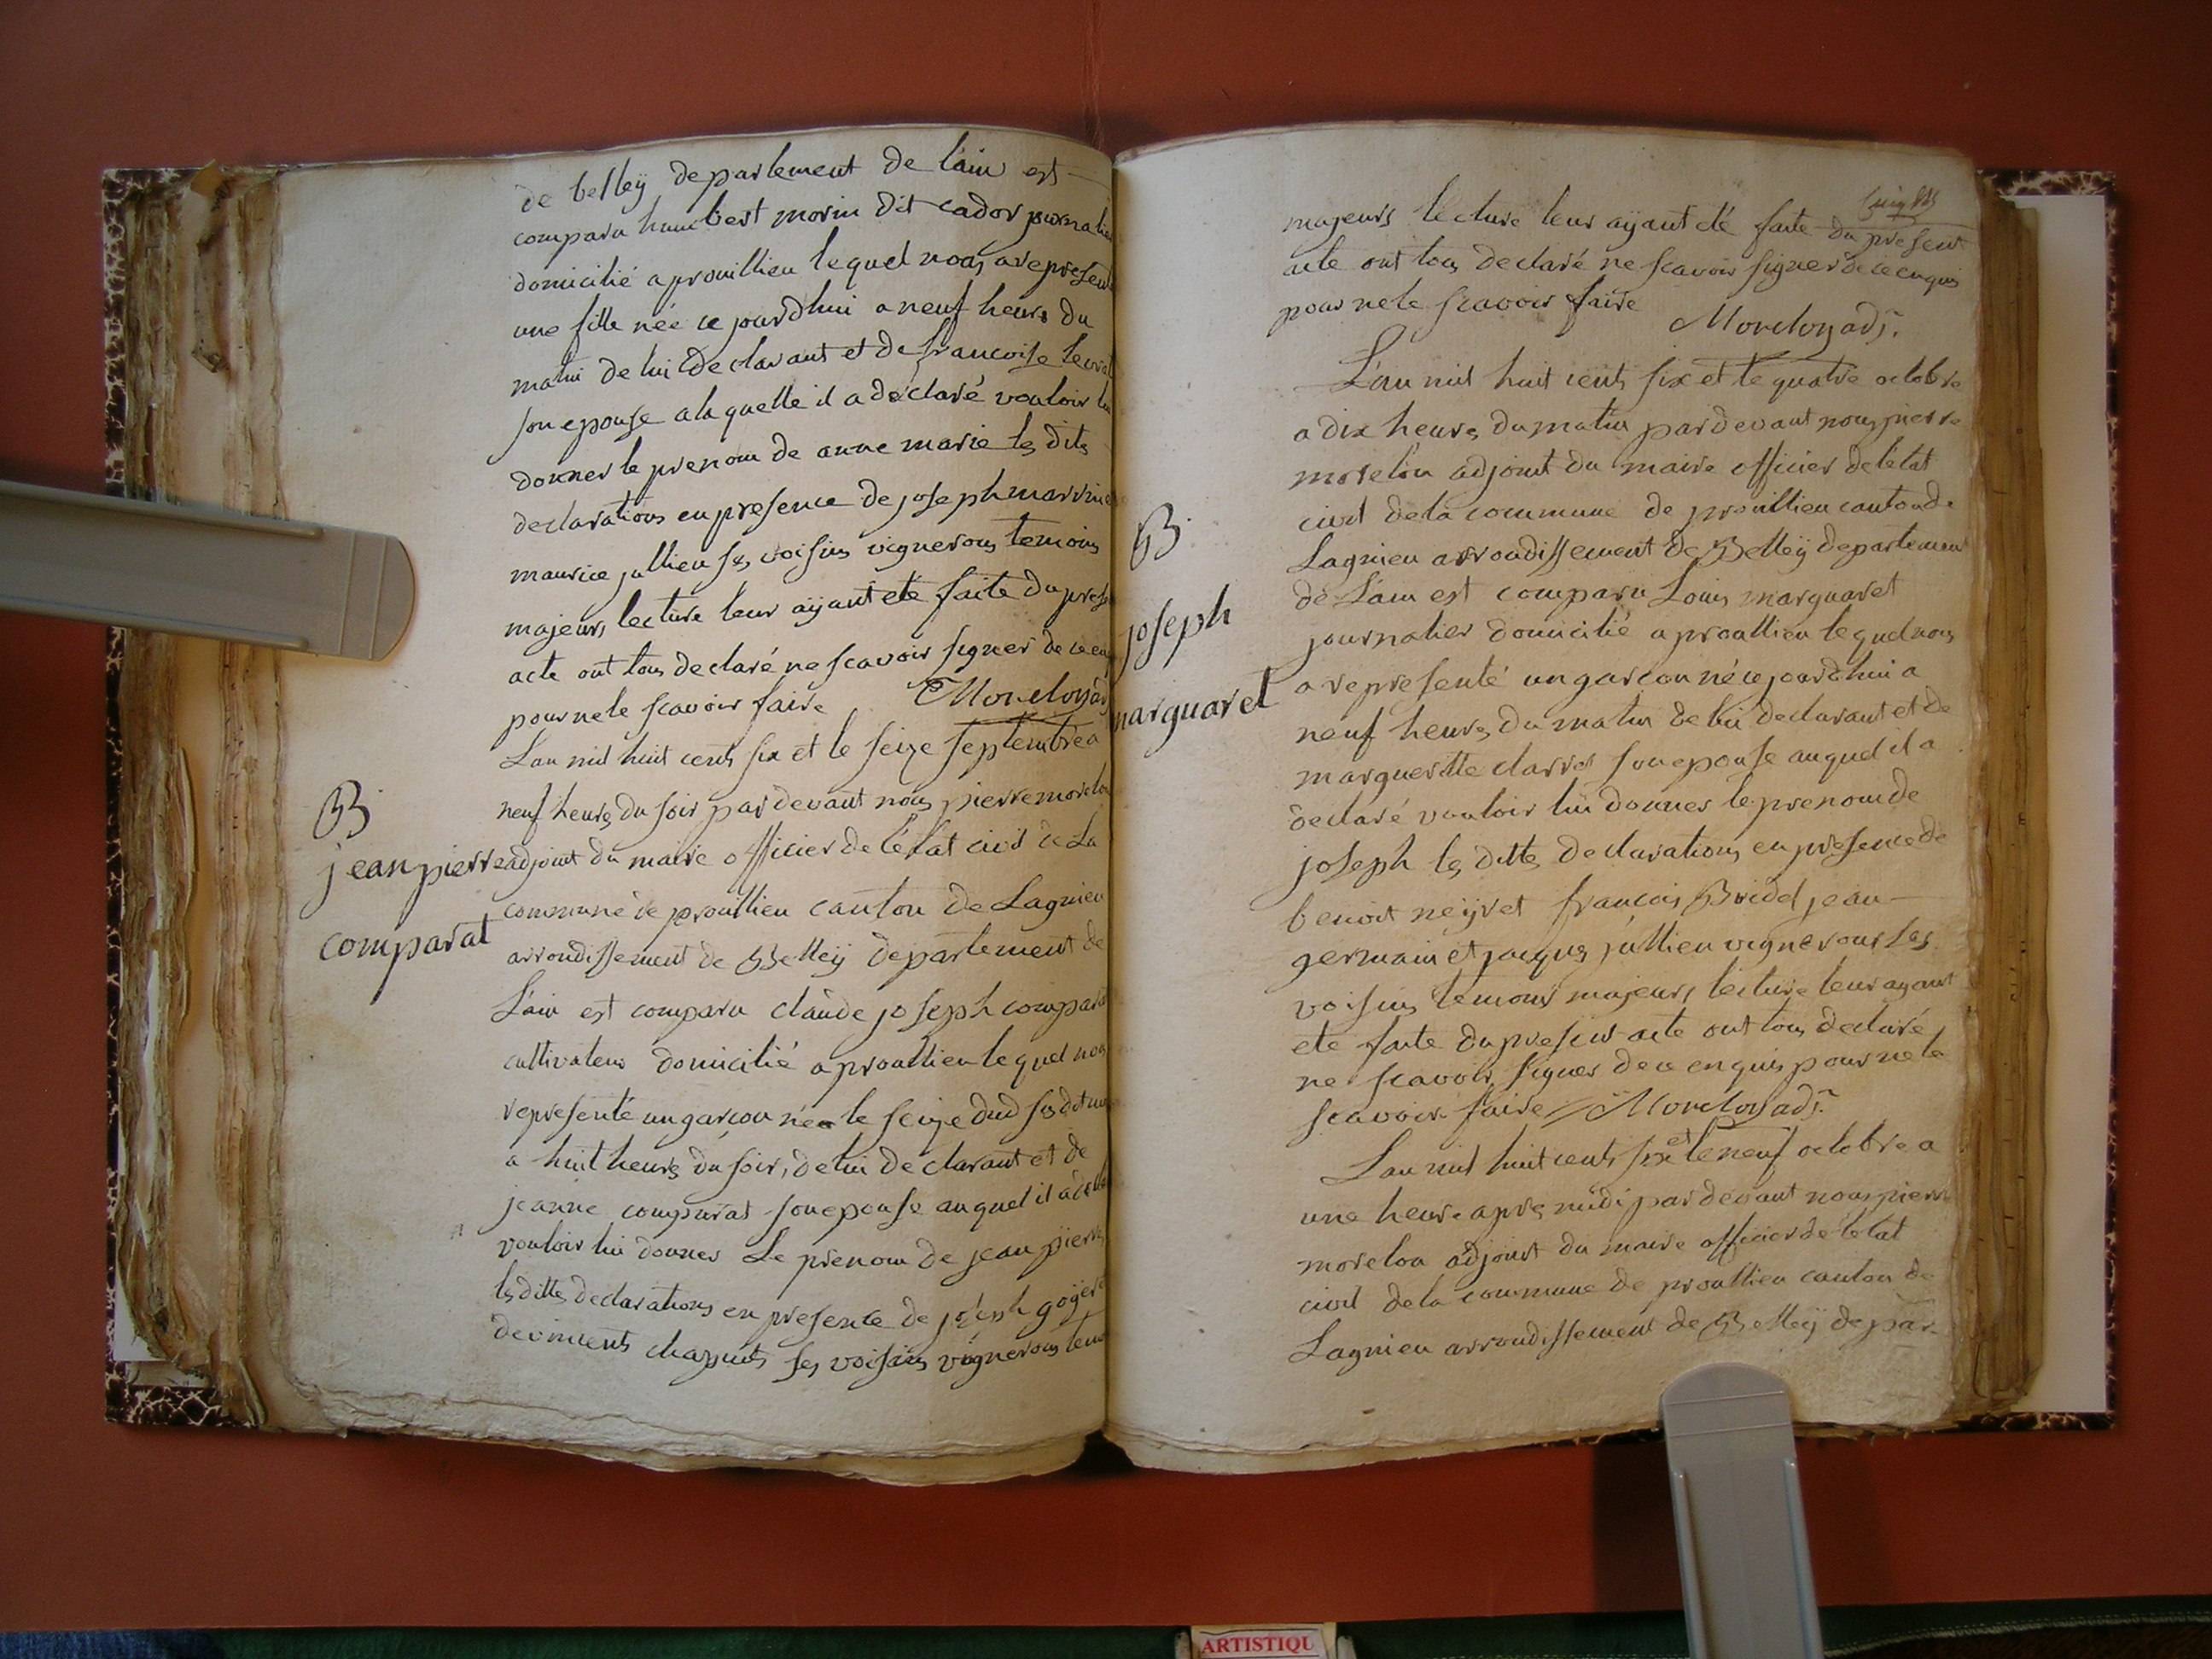 de belleÿ departement de l'ain est
comparu humbert morin dit cador journalier
domicilié a prouillieu lequel nous a represent
une fille née ce jourdhui a neuf heurs du
matin de lui declarant et de francoise
son epouse a la quelle il a déclaré vouloir lui
donner le prenom de anne marie les dits
declarations en presence de joseph
maurice jullien ses voisins vignerons temoins
majeurs lecture leur aÿant été faite du prese
acte ont tous declaré ne scavoir signer de ce enq
pour ne le scavoir faire Morelon adj
L'an mil huit cents six et le seize septembre a
neuf heures du soir par devant nous pierre morelon
B
jean pierre
comparat
adjoint du maire officier de l'état civil de La
commune de prouillieu canton de Lagnieu
arrondissement de Belleÿ departement de
L'ain est comparu claude joseph compara
cultivateur domicilié a proullieu lequel nou
représenté un garcon née le seize dud
a huit heures du soir, de lui declarant et de
jeanne comparat son epouse auquel il a
vouloir lui donner Le prenom de jean pierre
les dittes declarations en presence de joseph
chapuits ses voisins vignerons tem
majeurs lecture leur aÿant eté faite du present
acte ont tous declaré ne scavoir signer de ce enquis
pour ne le scavoir faire Morelon adj.
L'an mil huit cents six et le quatre octobre
a dix heures du matin par devant nous pierre
morelon adjoint du maire officier de l'état
civil de la commune de prouillieu canton de
B
joseph
marguaret
Lagnieu arrondissement de Belleÿ departement
de L'ain est comparu Louis marguaret
journalier domicilié a proullieu lequel nous
a représenté un garcon né ce jourdhui a
neuf heures du matin de lui declarant et de
margueritte son epouse auquel il a
declaré vouloir lui donner le prenom de
joseph les dittes declarations en presence de
benoit neÿret francois Bridel jean
germain et jacques jullien vignerons ses
voisins temoins majeurs lecture leur ayant
eté faite du present acte ont tous declaré
ne scavoir signer de ce enquis pour ne le
scavoir faire Morelon adj.
L'an mil huit cents six et le neuf octobre a
une heure apres midi par devant nous pierre
morelon adjoint du maire officier de l'état
civil de la commune de proullieu canton de
Lagnieu arrondissement de Belleÿ depar-
ARTISTIQU